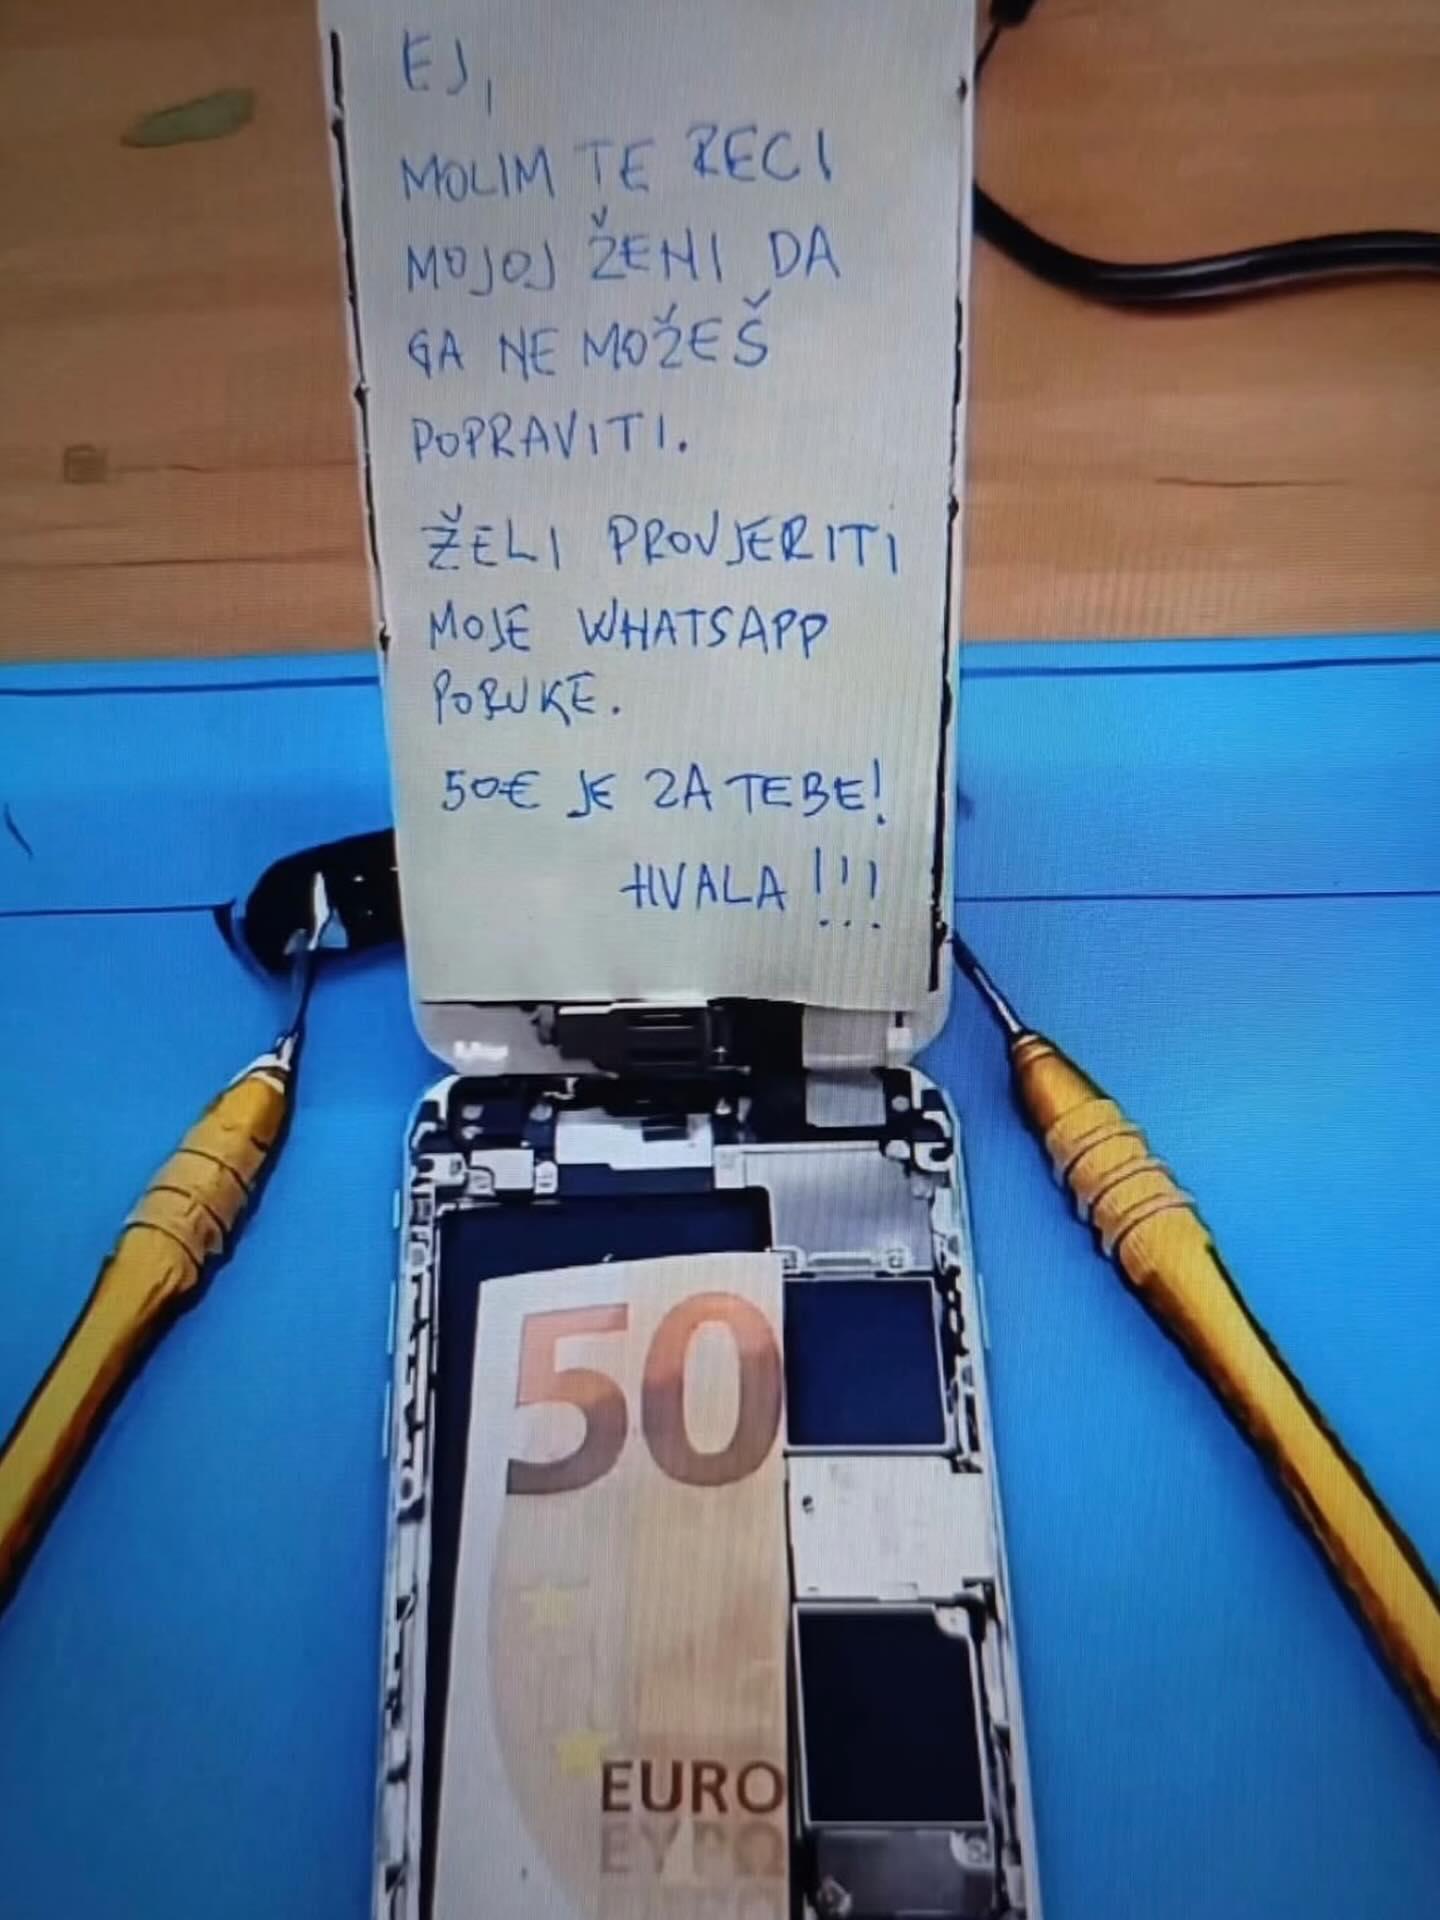 EJ,
MOLIM TE RECI
MOJOJ ŽENI DA
GA NE MOŽEŠ
POPRAVITI.
ŽELI PROVJERITI
MOJE WHATSAPP
PORUKE.
50€ JE ZA TEBE!
HVALA !!!
50
EURO
ΕΥΡΩ